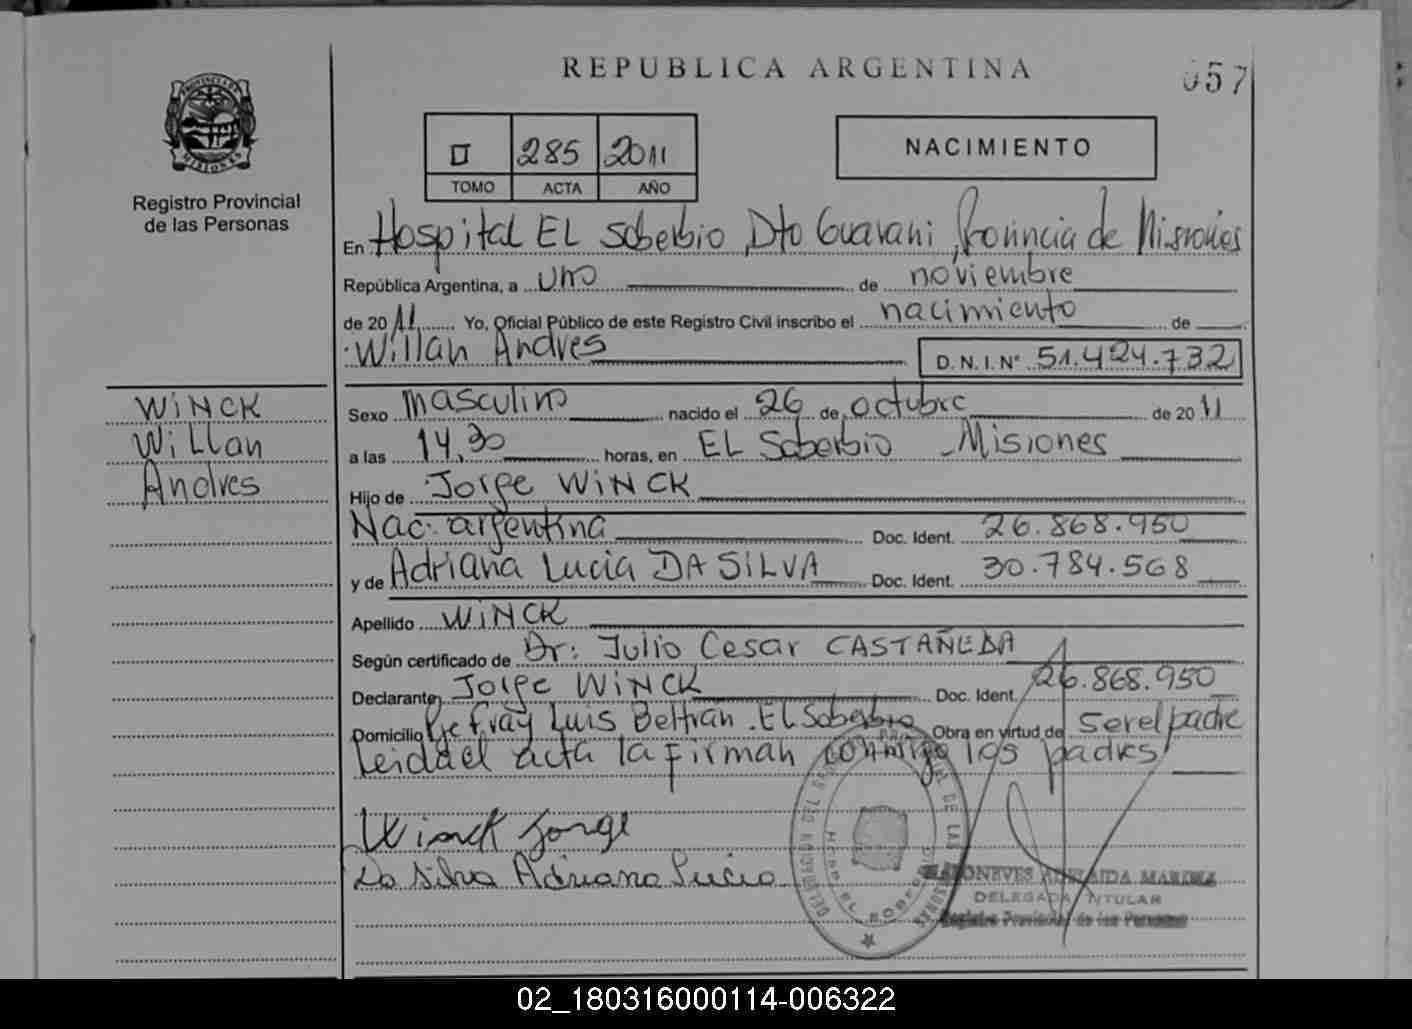 REPUBLICA ARGENTINA
057
PROVINCIA DE MISIONES
Registro Provincial
de las Personas
II 285 2011
TOMO ACTA AÑO
NACIMIENTO
En Hospital EL Soberbio, Dto Guarani, Provincia de Misiones
República Argentina, a uno de noviembre
de 2011 Yo, Oficial Público de este Registro Civil inscribo el nacimiento de
Willan Andres D.N.I.Nº 51.424.732
WINCK
Willan
Andres
Sexo masculino nacido el 26 de octubre de 2011
a las 14,30 horas, en EL Soberbio Misiones
Hijo de Jorge WINCK
Nac. argentina Doc. Ident. 26.868.950
y de Adriana Lucia DA SILVA Doc. Ident. 30.784.568
Apellido WINCK
Según certificado de Dr: Julio Cesar CASTAÑEDA
Declarante Jorge WINCK Doc. Ident. 26.868.950
Domicilio Fray Luis Beltran. El Soberbio Obra en virtud de ser el padre
Leida el acta la firman conmigo los padres
Winck Jorge
Da Silva Adriana Lucia
ADELAIDA MARINA
DELEGADA TITULAR
Registro Provincial de las Personas
02_180316000114-006322